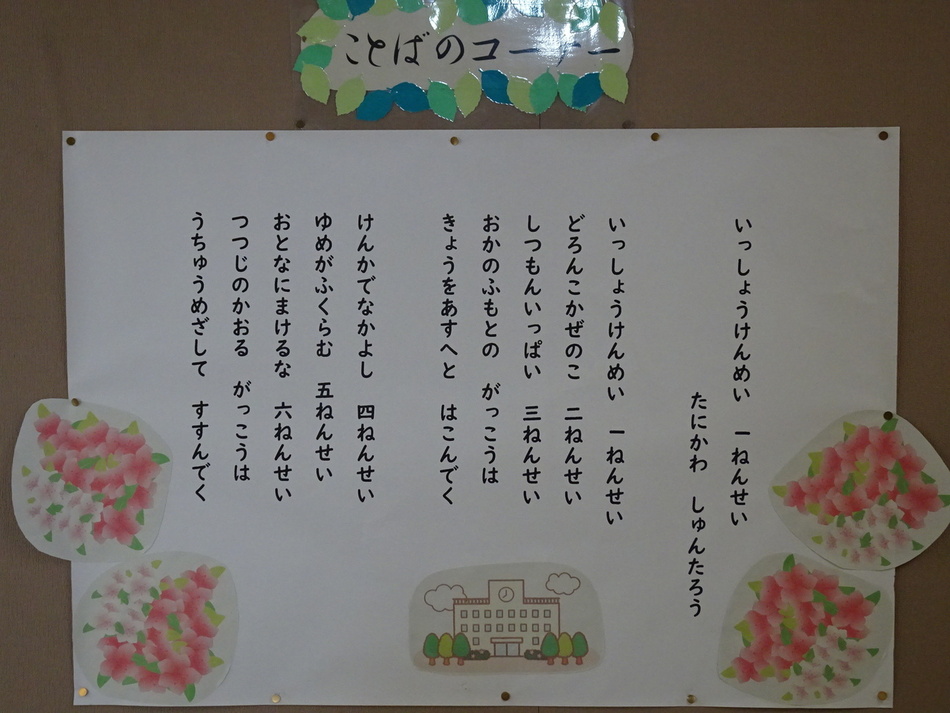 ことばのコーナー
いっしょうけんめい　一ねんせい
たにかわ　しゅんたろう
いっしょうけんめい　一ねんせい
どろんこかぜのこ　二ねんせい
しつもんいっぱい　三ねんせい
おかのふもとの　がっこうは
きょうをあすへと　はこんでく
けんかでなかよし　四ねんせい
ゆめがふくらむ　五ねんせい
おとなにまけるな　六ねんせい
つつじのかおる　がっこうは
うちゅうめざして　すすんでく